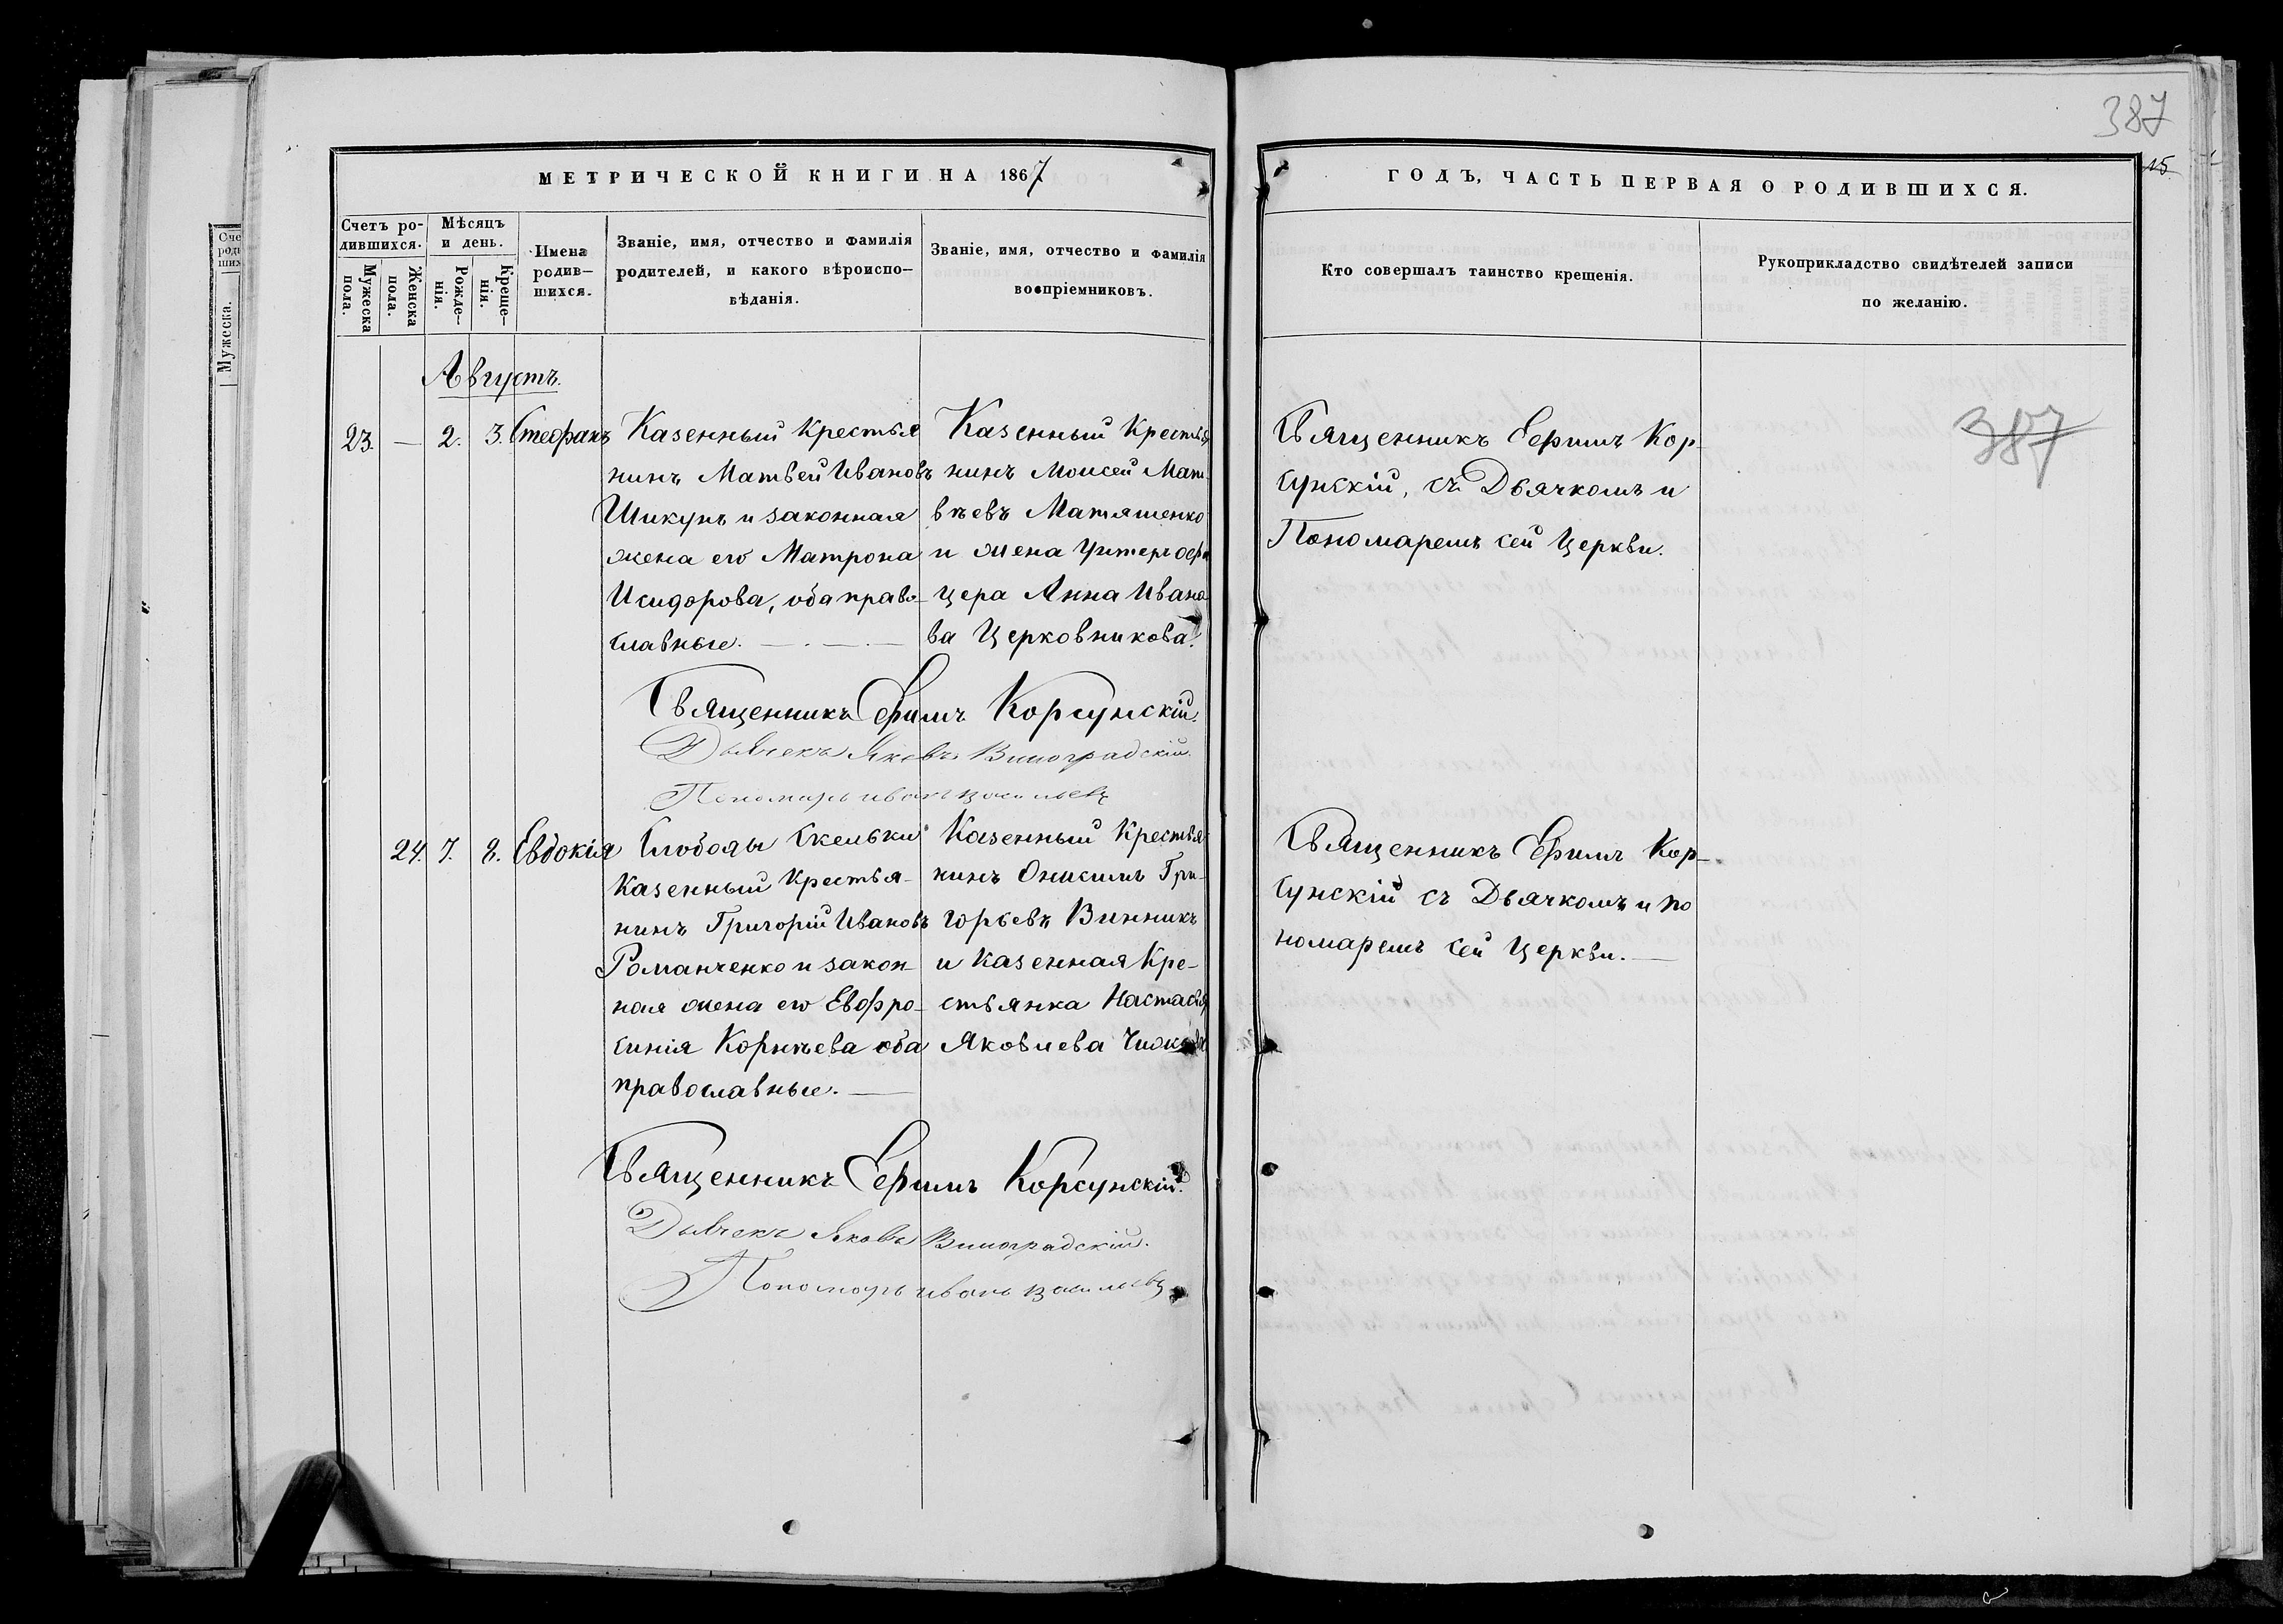 387
МЕТРИЧЕСКОЙ КНИГИ НА 1867
ГОДЪ, ЧАСТЬ ПЕРВАЯ О РОДИВШИХСЯ.
15
Счетъ ро-
дившихся.
Мужеска
пола.
Женска
пола.
Мѣсяцъ
и день.
Рожде-
нія.
Креще-
нія.
Имена
родив-
шихся.
Званіе, имя, отчество и фамилія
родителей, и какого вѣроиспо-
вѣданія.
Званіе, имя, отчество и фамилія
воспріемниковъ.
Кто совершалъ таинство крещенія.
Рукоприкладство свидѣтелей записи
по желанію.
Мужеска.
Августъ.
23. — 2. 3. Стефанъ
Казенный Крестья
нинъ Матвей Ивановъ
Шикунъ и законная
жена его Матрона
Исидорова, оба право-
славные.
Казенный Крестья
нинъ Моисей Мат
вѣевъ Матяшенко
и жена Унтеръ офи
цера Анна Ивано
ва Церковникова.
Священникъ Ефимъ Кор-
сунскій, съ Дьячкомъ и
Пономаремъ сей Церкви.
387
Священникъ Ефимъ Корсунскій.
Дьячекъ Яковъ Виноградскій.
Пономарь иванъ василевъ
24. 7. 8. Евдокія
Слободы Скельки
Казенный Крестья-
нинъ Григорій Ивановъ
Романченко и закон-
ная жена его Евфро-
синія Корнѣева оба
православные.
Казенный Крестья
нинъ Онисимъ Гри-
горьевъ Винникъ
и Казенная Кре-
стьянка Настасія
Яковлева
Священникъ Ефимъ Кор-
сунскій съ Дьячкомъ и по
номаремъ сей Церкви.
Священникъ Ефимъ Корсунскій.
Дьячекъ Яковъ Виноградскій.
Пономарь иванъ василевъ